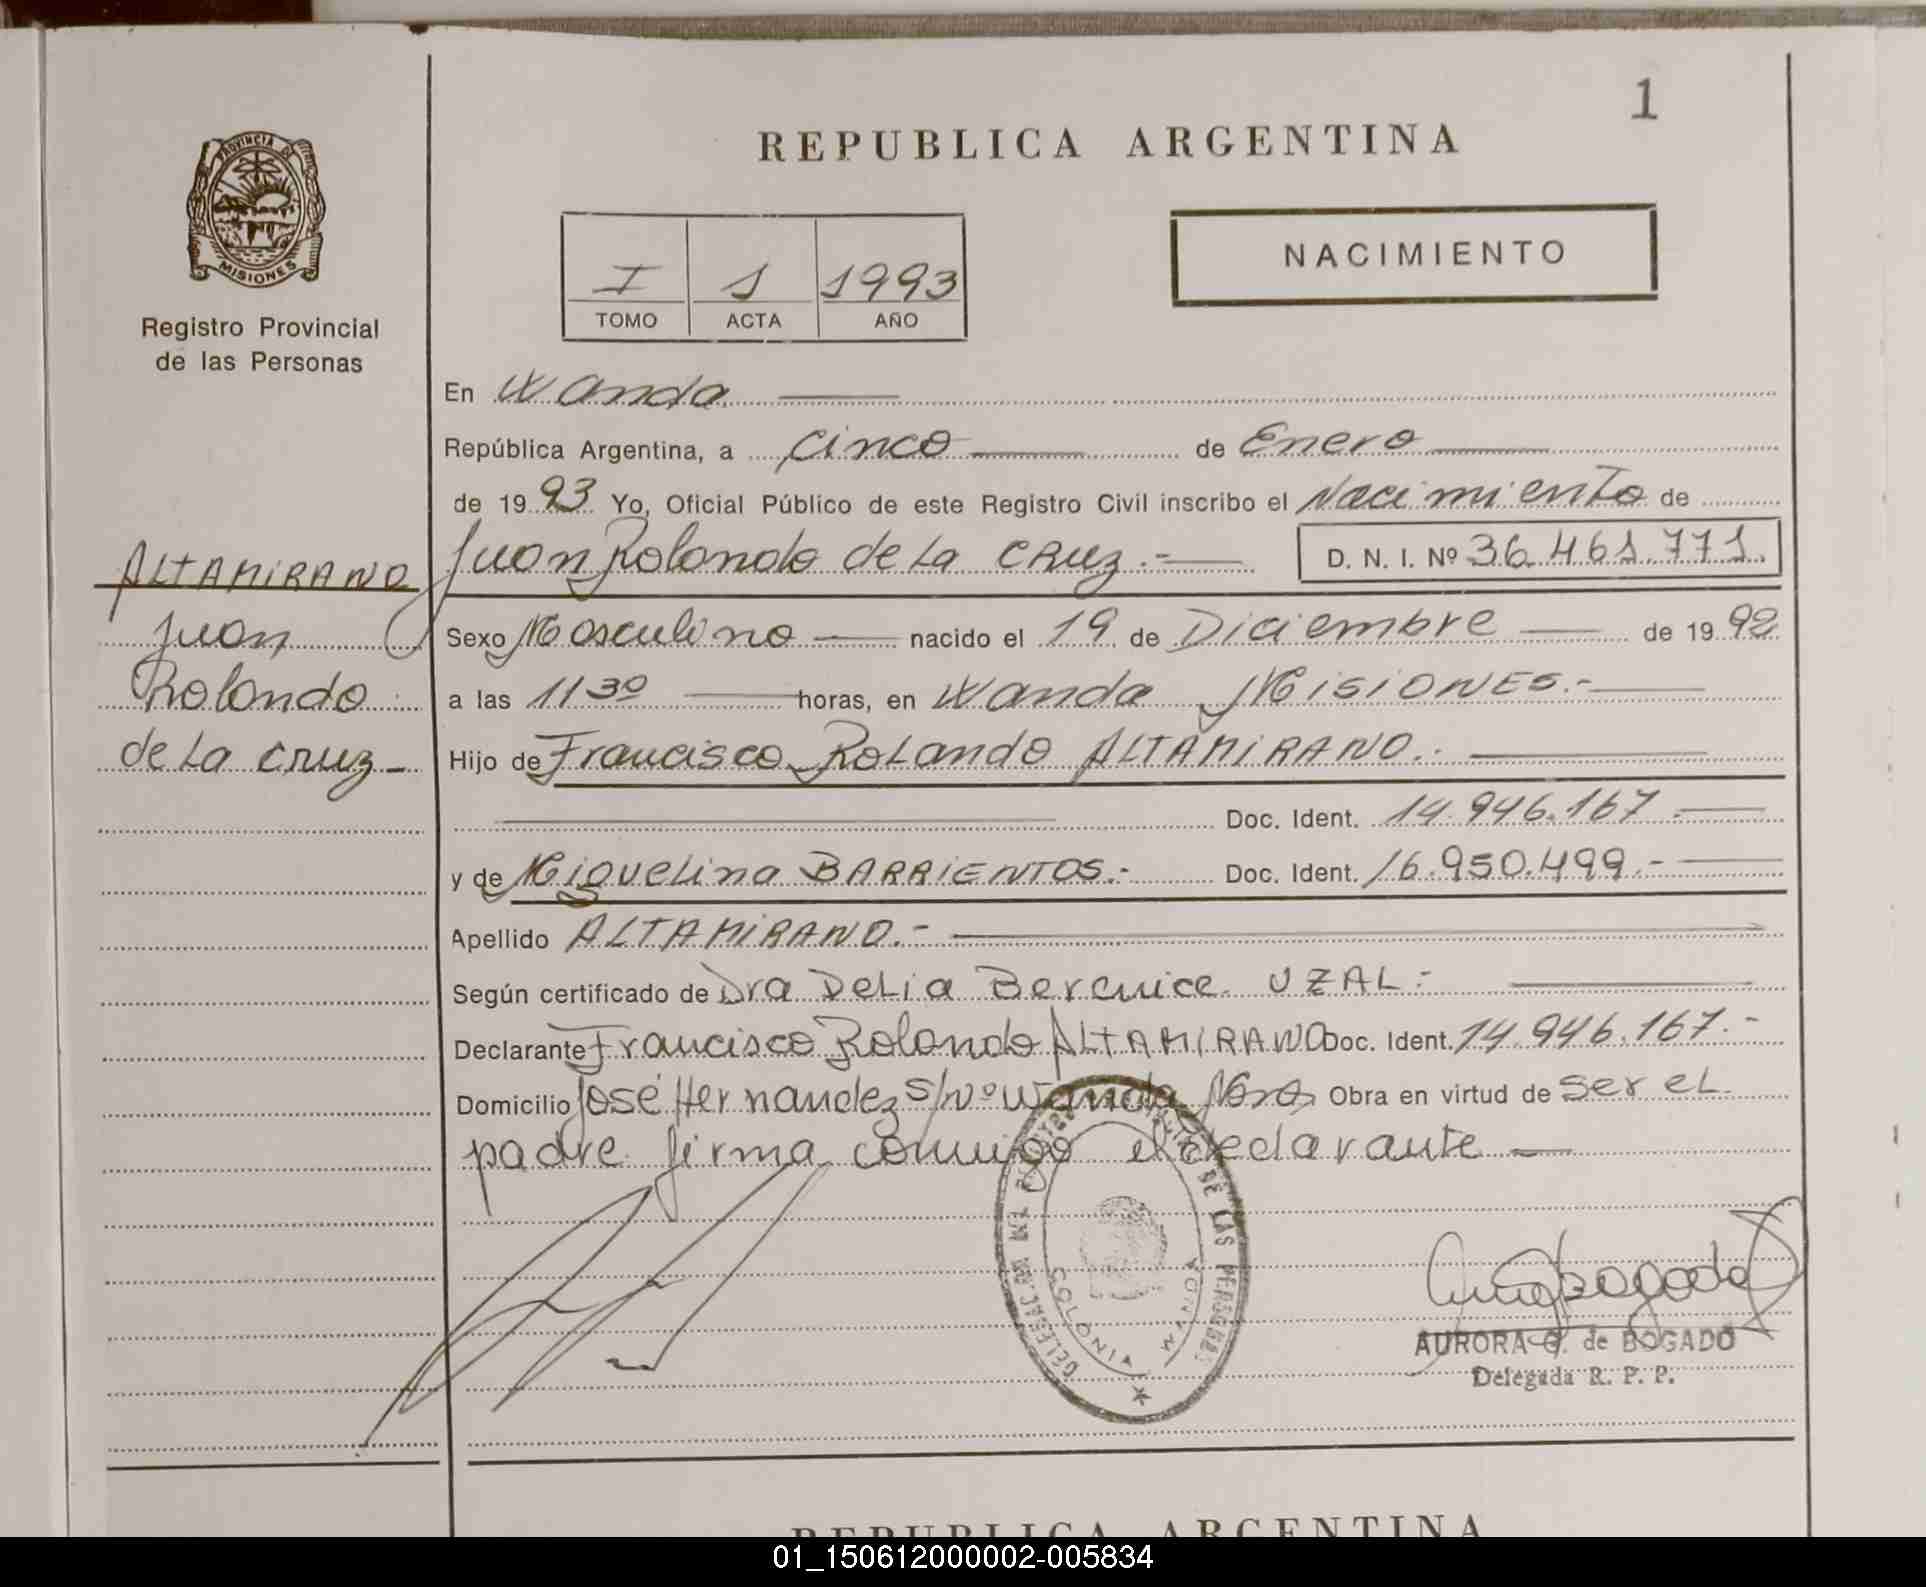 1
REPUBLICA ARGENTINA
PROVINCIA DE MISIONES
Registro Provincial
de las Personas
NACIMIENTO
I 1 1993
TOMO ACTA AÑO
En Wanda
República Argentina, a cinco de Enero
de 1993 Yo, Oficial Público de este Registro Civil inscribo el Nacimiento de
Juan Rolando de la Cruz.- D. N. I. Nº 36.461.771.
ALTAMIRANO
Juan
Rolando
de La Cruz
Sexo Masculino nacido el 19 de Diciembre de 1992
a las 11 30 horas, en Wanda MISIONES.-
Hijo de Francisco Rolando ALTAMIRANO.-
Doc. Ident. 14.946.167
y de Miguelina BARRIENTOS.- Doc. Ident. 16.950.499.-
Apellido ALTAMIRANO.-
Según certificado de Dra Delia Berenice UZAL.-
Declarante Francisco Rolando ALTAMIRANO Doc. Ident. 14.946.167.-
Domicilio José Hernandez S/Nº Wanda Obra en virtud de ser el
padre firma conmigo el declarante
DE LAS PERSONAS
COLONIA WANDA
AURORA G. de BOGADO
Delegada R. P. P.
REPUBLICA ARGENTINA
01_150612000002-005834